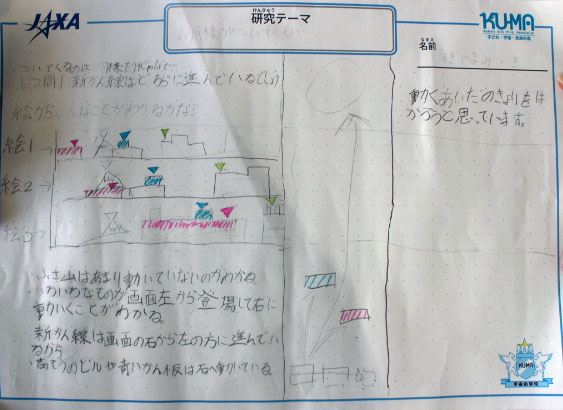 JAXA
けんきゅう
研究テーマ
お月様がついてくる
KUMA
子ども・宇宙・未来の会
なまえ
名前
ついてくるのは
しつ問1 新かん線はどちらに進んでいるでしょ
絵からどんなことがわかるかな?
絵1→
絵2→
絵3→
動くあいだのきょりをは
かろうと思っています。
・ふじ山はあまり動いていないのがわかね。
・いろいろなものが画面左から登場して右に
動いくことがわかね。
新かん線は画面の右から左の方に進んでい
るから
高そうのビルや青いかん板は右へ動いている
KUMA
宇宙the学校